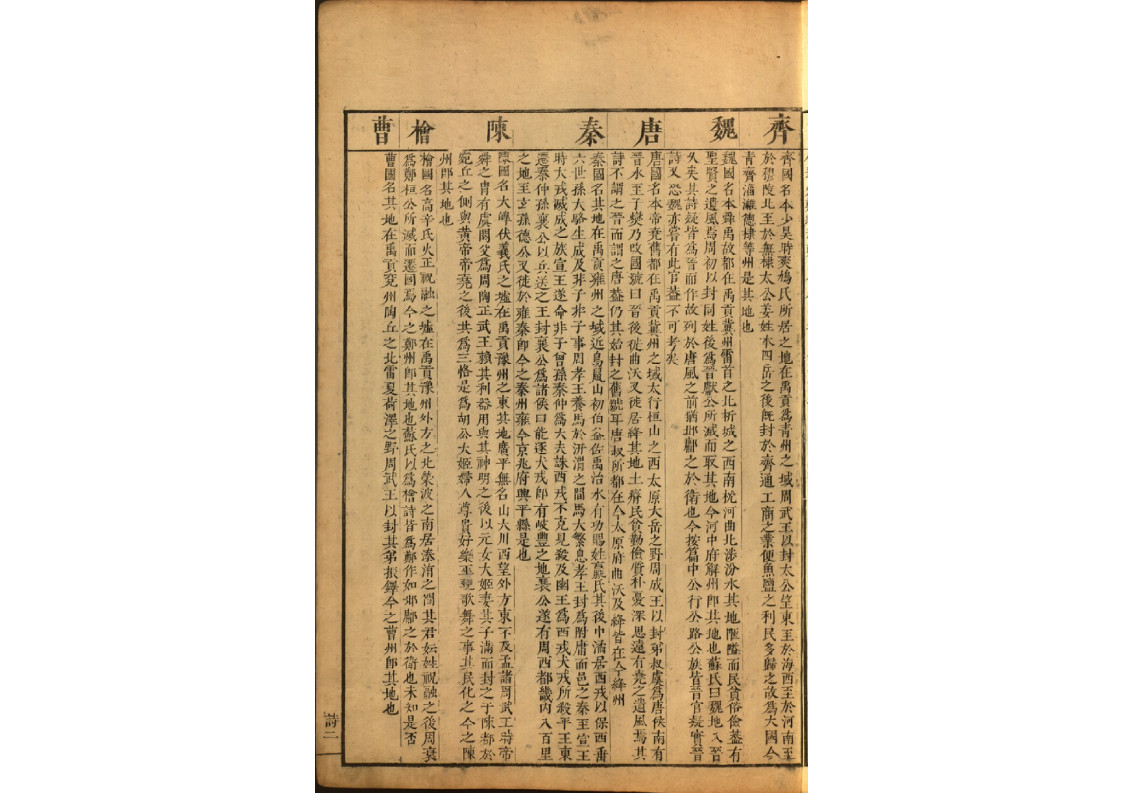 齊
齊國名本少昊時爽鳩氏所居之地在禹貢為青州之域周武王以封太公望東至於海西至於河南至
於穆陵北至於無棣太公姜姓本四岳之後既封於齊通工商之業便魚鹽之利民多歸之故為大國今
青齊淄濰德棣等州是其地也
魏
魏國名本舜禹故都在禹貢冀州雷首之北析城之西南枕河曲北涉汾水其地陿隘而民貧俗儉蓋有
聖賢之遺風焉周初以封同姓後為晉獻公所滅而取其地今河中府解州即其地也蘇氏曰魏地入晉
久矣其詩疑皆為晉而作故列於唐風之前猶邶鄘之於衛也今按篇中公行公路公族皆晉官疑實晉
詩又恐魏亦嘗有此官蓋不可考矣
唐
唐國名本帝堯舊都在禹貢冀州之域太行恒山之西太原大岳之野周成王以封弟叔虞為唐侯南有
晉水至子燮乃改國號曰晉後徙曲沃又徙居絳其地土瘠民貧勤儉質朴憂深思遠有堯之遺風焉其
詩不謂之晉而謂之唐蓋仍其始封之舊號耳唐叔所都在今太原府曲沃及絳皆在今絳州
秦
秦國名其地在禹貢雍州之域近鳥鼠山初伯益佐禹治水有功賜姓嬴氏其後中潏居西戎以保西垂
六世孫大駱生成及非子非子事周孝王養馬於汧渭之間馬大繁息孝王封為附庸而邑之秦至宣王
時犬戎滅成之族宣王遂命非子曾孫秦仲為大夫誅西戎不克見殺及幽王為西戎犬戎所殺平王東
遷秦仲孫襄公以兵送之王封襄公為諸侯曰能逐犬戎即有岐豐之地襄公遂有周西都畿內八百里
之地至玄孫德公又徙於雍秦即今之秦州雍今京兆府興平縣是也
陳
陳國名大皡伏羲氏之墟在禹貢豫州之東其地廣平無名山大川西望外方東不及孟諸周武王時帝
舜之冑有虞閼父為周陶正武王賴其利器用與其神明之後以元女大姬妻其子滿而封之于陳都於
宛丘之側與黃帝帝堯之後共為三恪是為胡公大姬婦人尊貴好樂巫覡歌舞之事其民化之今之陳
州即其地也
檜
檜國名高辛氏火正祝融之墟在禹貢豫州外方之北滎波之南居溱洧之間其君妘姓祝融之後周衰
為鄭桓公所滅而遷國焉今之鄭州即其地也蘇氏以為檜詩皆為鄭作如邶鄘之於衛也未知是否
曹
曹國名其地在禹貢兗州陶丘之北雷夏荷澤之野周武王以封其弟振鐸今之曹州即其地也
詩二